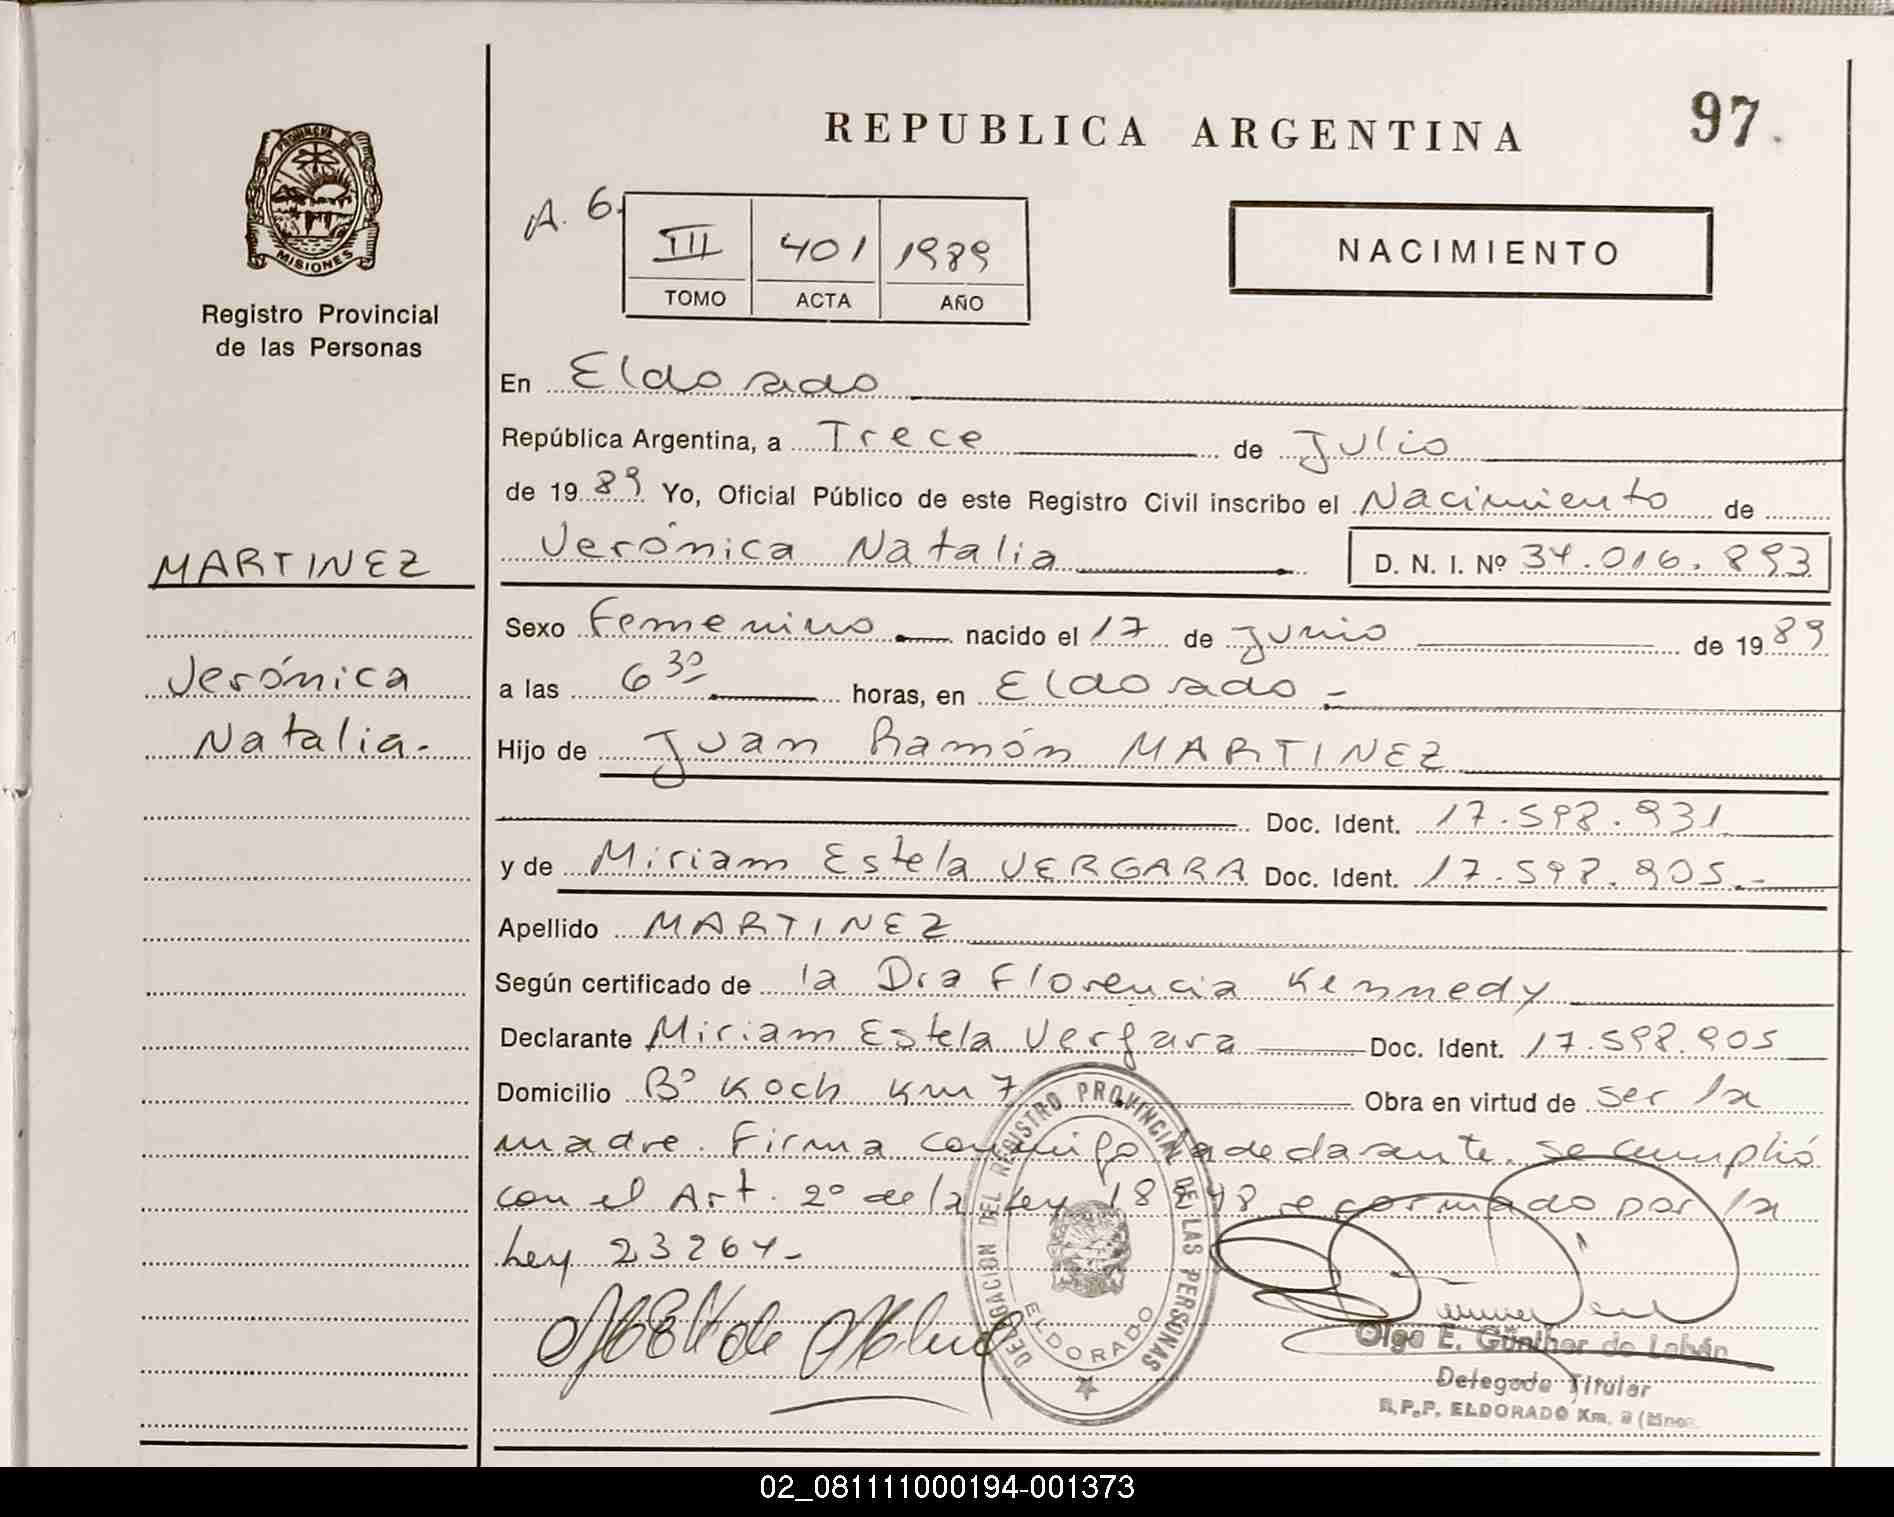 REPUBLICA ARGENTINA
97.
PROVINCIA DE
MISIONES
Registro Provincial
de las Personas
A. 6.
III 401 1989
TOMO ACTA AÑO
NACIMIENTO
En Eldorado
República Argentina, a Trece de Julio
de 1989 Yo, Oficial Público de este Registro Civil inscribo el Nacimiento de
MARTINEZ
Verónica Natalia D. N. I. Nº 34.016.893
Sexo Femenino nacido el 17 de Junio de 1989
Verónica
Natalia.-
a las 6 30 horas, en Eldorado -
Hijo de Juan Ramón MARTINEZ
Doc. Ident. 17.598.931
y de Miriam Estela VERGARA Doc. Ident. 17.598.905.-
Apellido MARTINEZ
Según certificado de la Dra Florencia Kennedy
Declarante Miriam Estela Vergara Doc. Ident. 17.598.905
Domicilio Bº Koch Km 7 Obra en virtud de ser la
madre. Firma conmigo la declarante. Se cumplió
con el Art. 2º de la Ley 18248 reformado por la
Ley 23264-
DELEGACION DEL REGISTRO PROVINCIAL DE LAS PERSONAS
ELDORADO
Olga E. Günther de
Delegada Titular
R.P.P. ELDORADO Km. 9 (Mnes.
02_081111000194-001373